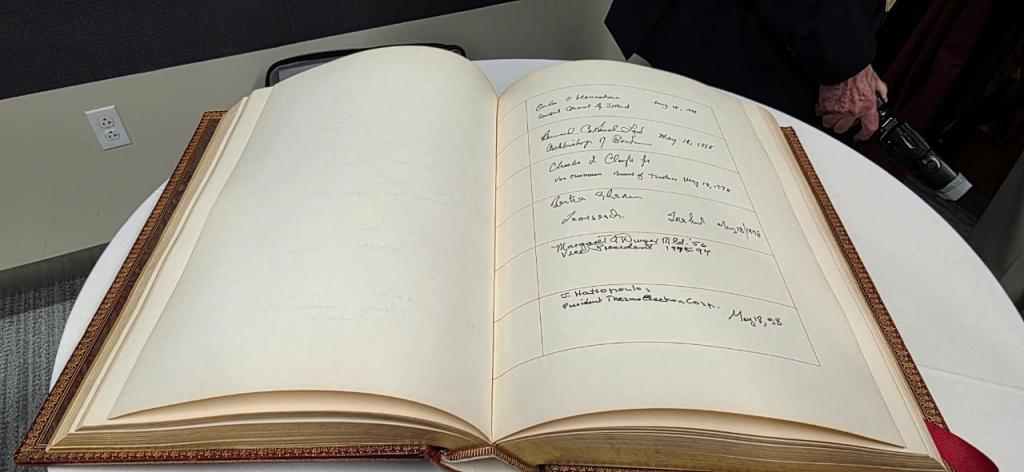 May 18, 1998
Consul General of Ireland
Bernard Cardinal Law May 18, 1998
Archbishop of Boston
Charles I. Clough Jr
Vice Chairman Board of Trustees May 18, 1998
Bertie Ahern
Taoiseach. Ireland May/18/1998
Margaret A. Dwyer M.Ed. '56
Vice President 1975-97
J. Hatsopoulos
President Thermo Electron Corp.
May 18, 98